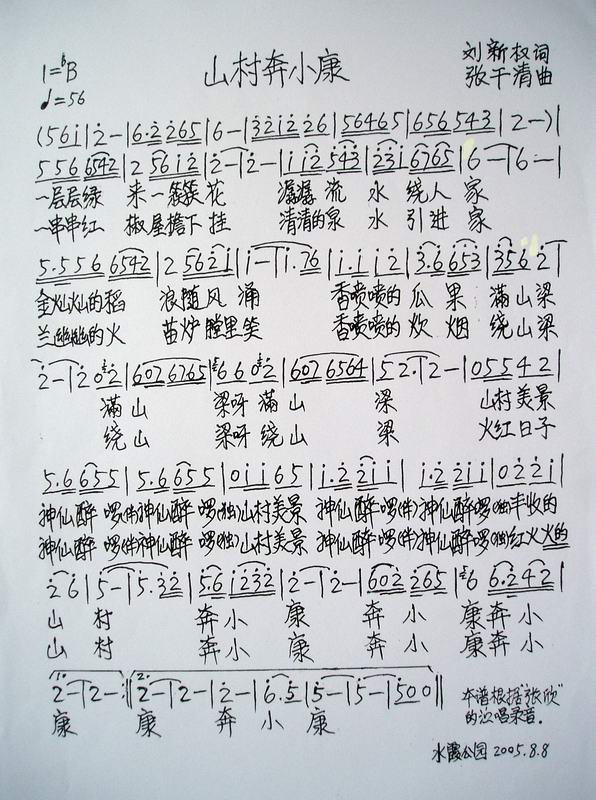 山村奔小康
刘新权词
张千清曲
1=♭B
♩=56
(5 6 0 i | 2 — | 6·2 2 6 5 | 6 — | 3 2 i 2 2 6 | 5 6 4 6 5 | 6 5 6 5 4 3 | 2 — ) |
5 5 6 6 5 4 2 | 2 5 6 i 2 | 2 — | 2 — | i i 2 5 4 3 | 2 3 i 6 7 6 5 | 6 — | 6 — |
一层层绿 来一簇簇花 潺潺流 水 绕人 家
一串串红 椒屋擔下挂 清清的泉 水 引进 家
5·5 5 6 6 5 4 2 | 2 5 6 2 i | i — | i· 7 6 | i· i i 2 | 3·6 6 5 3 | 3 5 6 2 |
金灿灿的稻 浪随风 涌 香喷喷的 瓜 果 满山梁
兰幽幽的火 苗炉膛里笑 香喷喷的 炊 烟 绕山梁
2 — | 2 0 2 | 6 0 2 6 7 6 5 | 6 6 0 2 | 6 0 2 6 5 6 4 | 5 2· | 2 — | 0 5 5 4 2 |
满山 梁呀 满山 梁 山村美景
绕山 梁呀 绕山 梁 火红日子
5·6 6 5 5 | 5·6 6 5 5 | 0 i i 6 5 | i·2 2 i i | i·2 2 i i | 0 2 2 i |
神仙醉 啰(伴)神仙醉 啰(独)山村美景 神仙醉 啰(伴)神仙醉啰(独)丰收的
神仙醉 啰(伴)神仙醉 啰(独)山村美景 神仙醉 啰(伴)神仙醉啰(独)红火火的
2 6 | 5 — | 5· 3 2 | 5·6 i 2 3 2 | 2 — | 2 — | 6 0 2 2 6 5 | 6 6·2 4 2 |
山 村 奔小 康 奔小 康奔小
山 村 奔小 康 奔小 康奔小
1. 2 — | 2 — :‖ 2. 2 — | 2 — | 2 — | 6·5 | 5 — | 5 — | 5 0 0 ‖
康 康 奔 小 康
本谱根据“张欣”
的演唱录音.
水霞公园 2005.8.8